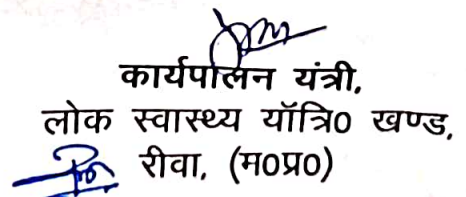 कार्यपालन यंत्री,
लोक स्वास्थ्य यॉत्रि0 खण्ड,
रीवा, (म0प्र0)